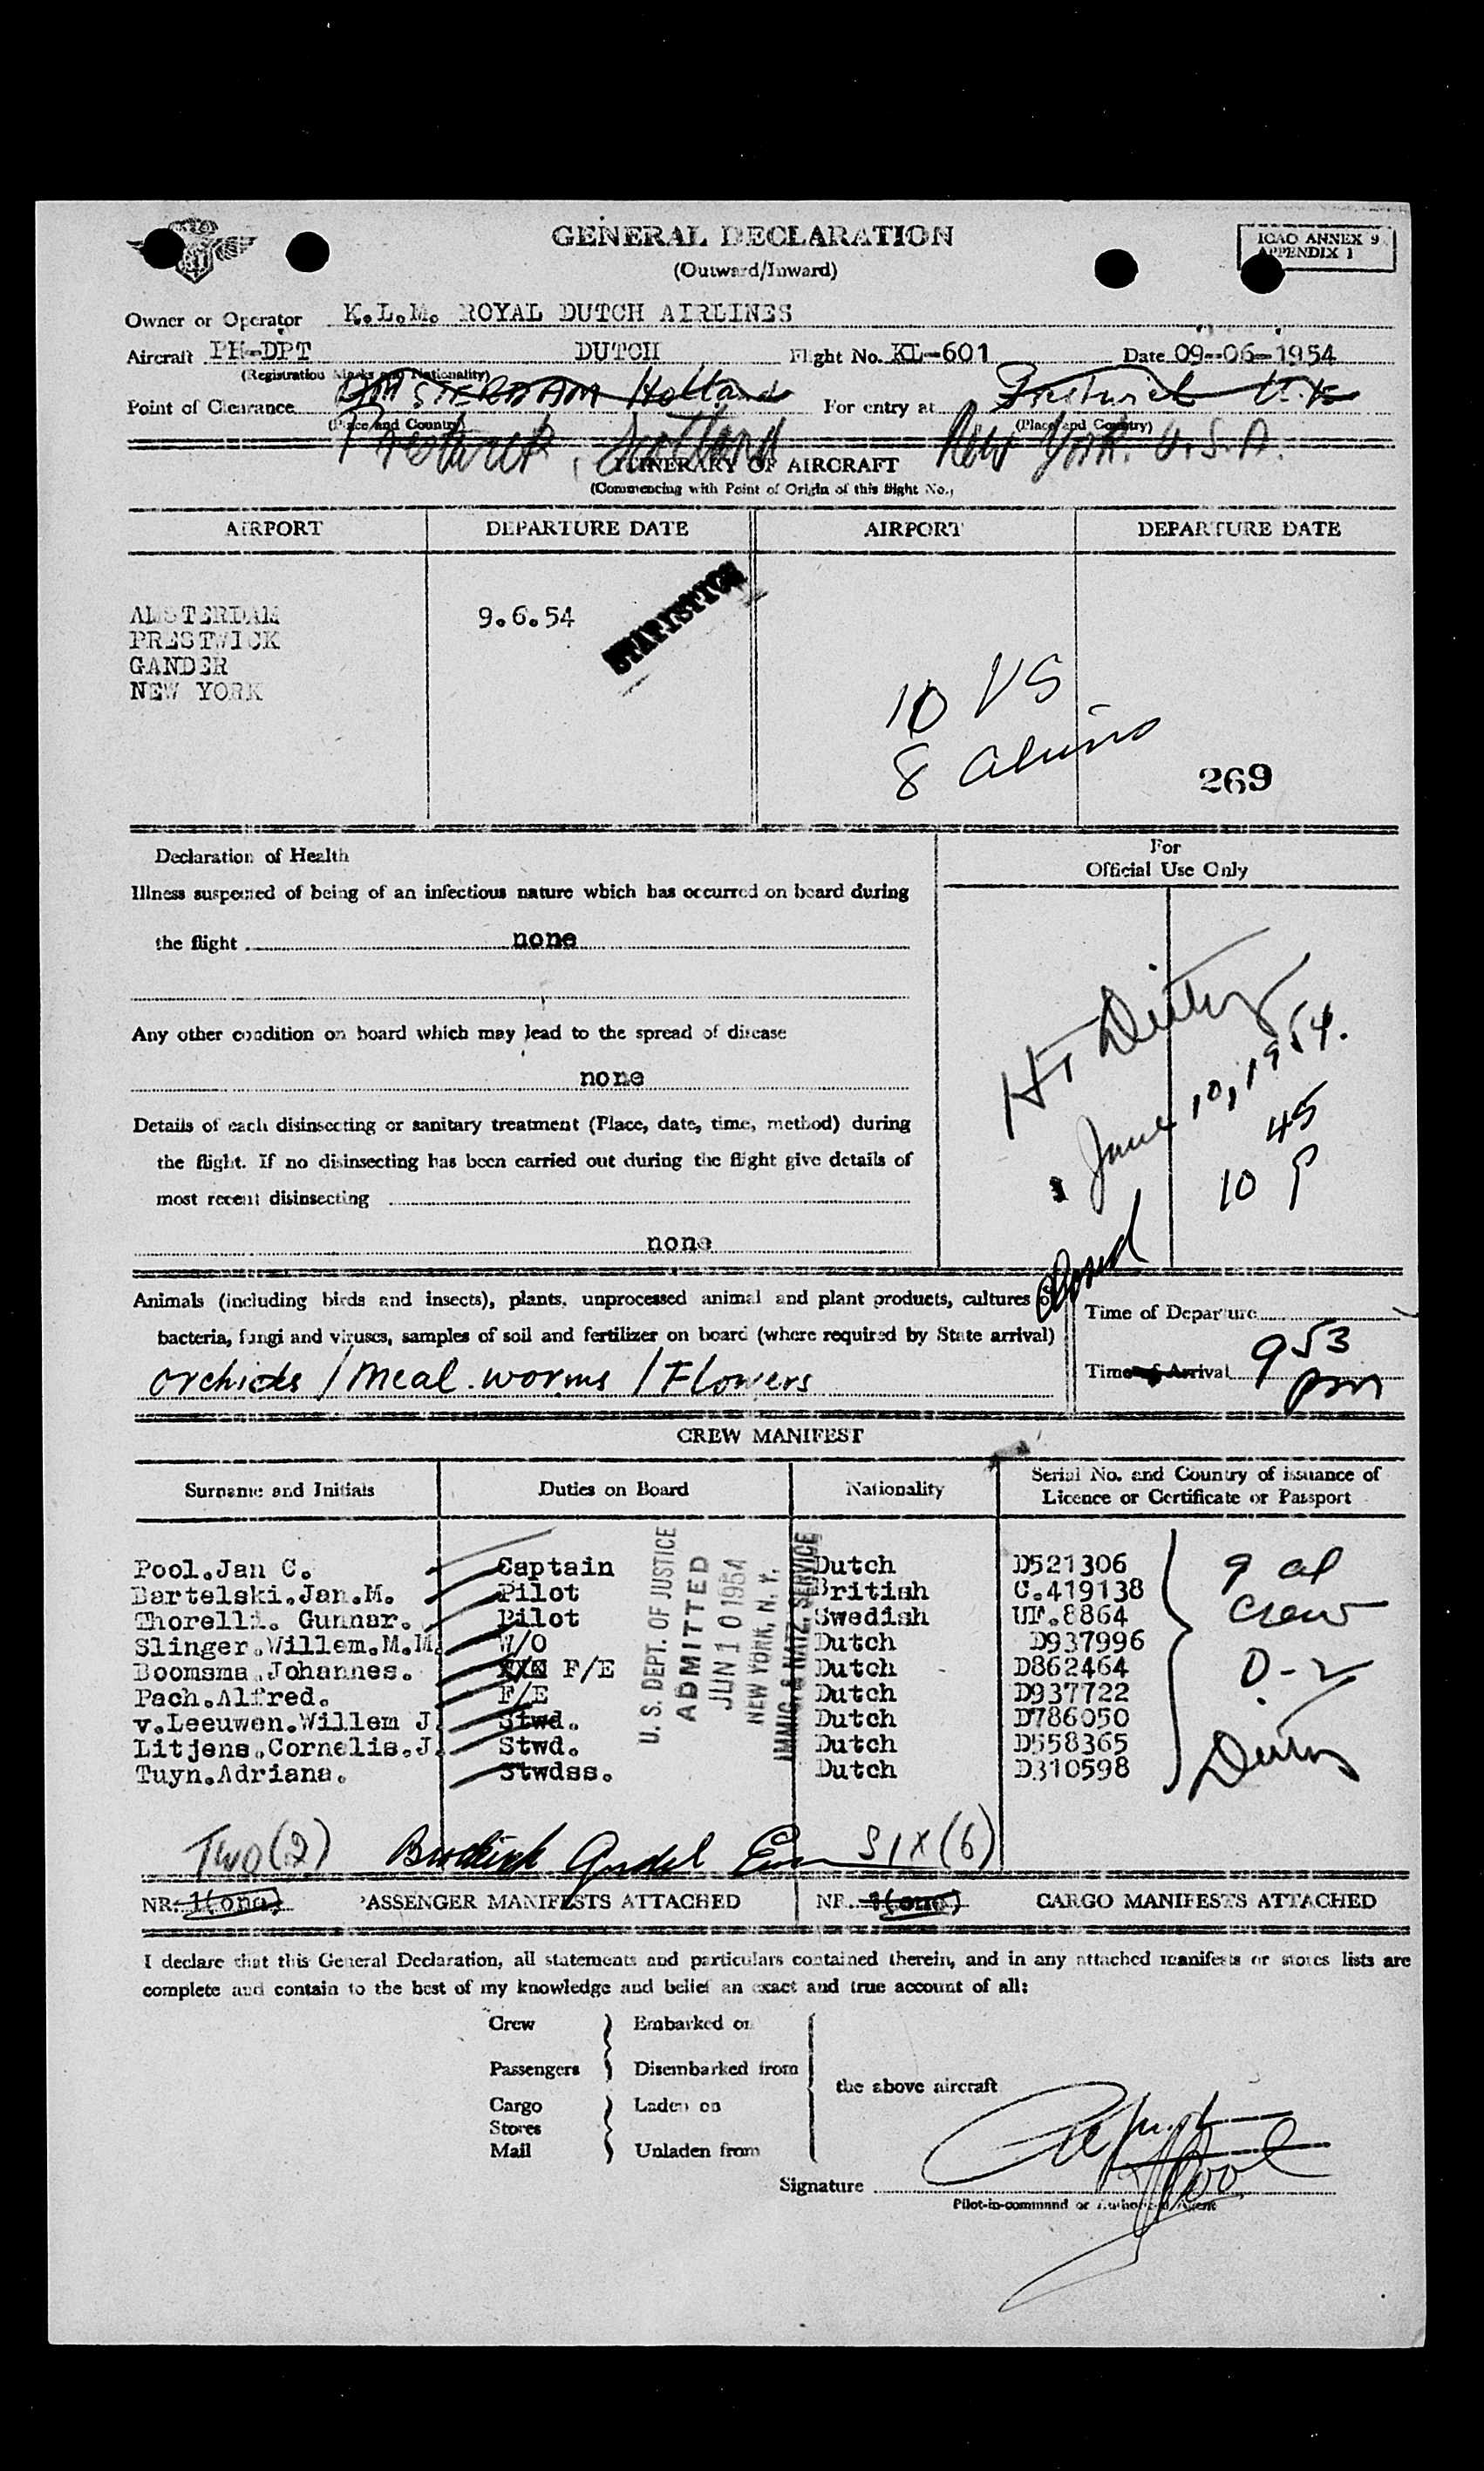 GENERAL DECLARATION
(Outward/Inward)
ICAO ANNEX 9
APPENDIX 1
Owner or Operator K.L.M. ROYAL DUTCH AIRLINES
Aircraft PH-DPT DUTCH Flight No. KL-601 Date 09-06-1954
(Registration Marks and Nationality)
Point of Clearance AMSTERDAM Holland For entry at Prestwick U.K
(Place and Country) (Place and Country)
Prestwick, Scotland New York. U.S.A.
ITINERARY OF AIRCRAFT
(Commencing with Point of Origin of this flight No.)
AIRPORT DEPARTURE DATE AIRPORT DEPARTURE DATE
STATISTICS
AMSTERDAM 9.6.54
PRESTWICK
GANDER
NEW YORK
10 US
8 aliens
269
Declaration of Health
For
Official Use Only
Illness suspected of being of an infectious nature which has occurred on board during
the flight none
Any other condition on board which may lead to the spread of disease
none
Details of each disinsecting or sanitary treatment (Place, date, time, method) during
the flight. If no disinsecting has been carried out during the flight give details of
most recent disinsecting
none
June 10, 1954.
10 45 P
Closed
Animals (including birds and insects), plants, unprocessed animal and plant products, cultures of
bacteria, fungi and viruses, samples of soil and fertilizer on board (where required by State arrival)
orchids / Meal.worms / Flowers
Time of Departure
Time of Arrival 9 53 pm
CREW MANIFEST
Surname and Initials Duties on Board Nationality Serial No. and Country of issuance of
Licence or Certificate or Passport
Pool.Jan C. Captain Dutch D521306
Bartelski.Jan.M. Pilot British C.419138
Thorelli. Gunnar. Pilot Swedish UF.8864
Slinger.Willem.M.M. W/O Dutch D937996
Boomsma.Johannes. F/E Dutch D862464
Pach.Alfred. F/E Dutch D937722
v.Leeuwen.Willem J. Stwd. Dutch D786050
Litjens.Cornelis.J. Stwd. Dutch D558365
Tuyn.Adriana. Stwdss. Dutch D310598
U. S. DEPT. OF JUSTICE
ADMITTED
JUN 10 1954
NEW YORK, N. Y.
IMMIG. & NATZ. SERVICE
9 al
crew
D-2
Two (2) SIX (6)
NR. 1(one) PASSENGER MANIFESTS ATTACHED NR. 1(one) CARGO MANIFESTS ATTACHED
I declare that this General Declaration, all statements and particulars contained therein, and in any attached manifests or stores lists are
complete and contain to the best of my knowledge and belief an exact and true account of all:
Crew Embarked on
Passengers Disembarked from
the above aircraft
Cargo Laden on
Stores
Mail Unladen from
Signature JPool
Pilot-in-command or Authorized Agent